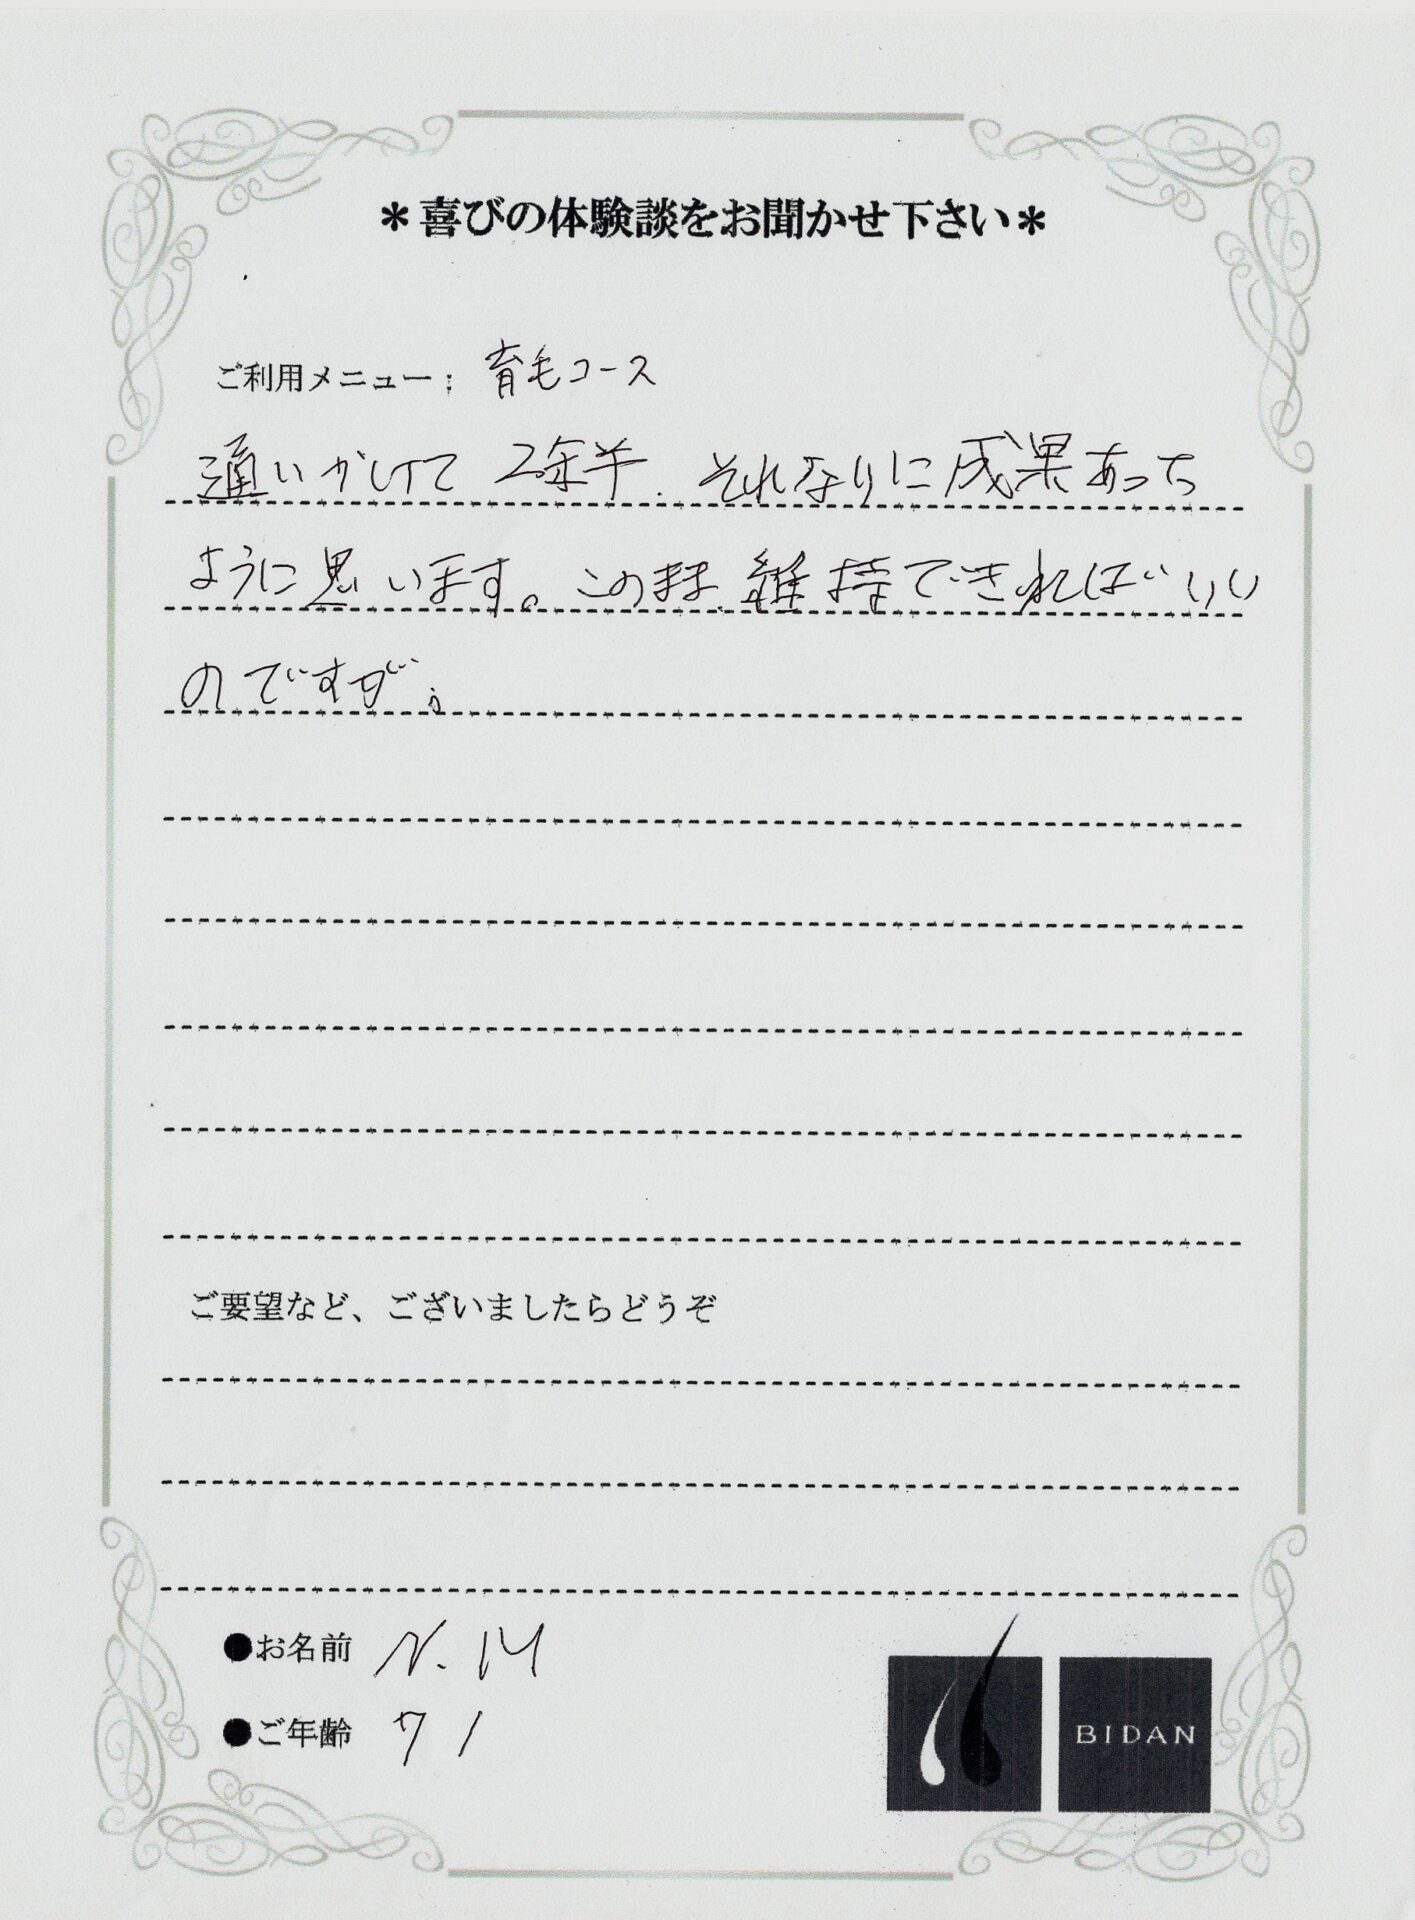 ＊喜びの体験談をお聞かせ下さい＊
ご利用メニュー： 育毛コース
通いかけて 2年半. それなりに成果あっち
ように思います。このまま維持できればいい
のですが。
ご要望など、ございましたらどうぞ
●お名前 N.M
●ご年齢 71
BIDAN